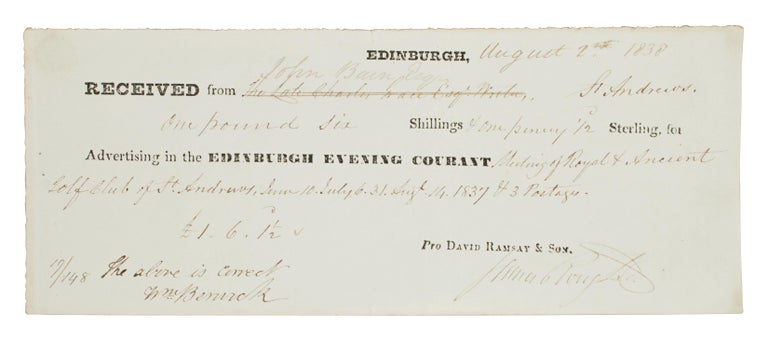 EDINBURGH, August 2nd 1838
John Bain Esqr
RECEIVED from The Late Charles Grace Esqr Writer, St Andrews.
One pound six Shillings & one penny 1/2 Sterling, for
Advertising in the EDINBURGH EVENING COURANT, Meeting of Royal & Ancient
Golf Club of St Andrews, June 10. July 6. 31. Augt. 14. 1837 & 3 Postages.
£1. 6. 1 1/2
Pro DAVID RAMSAY & SON.
James
The above is correct
Wm Berwick